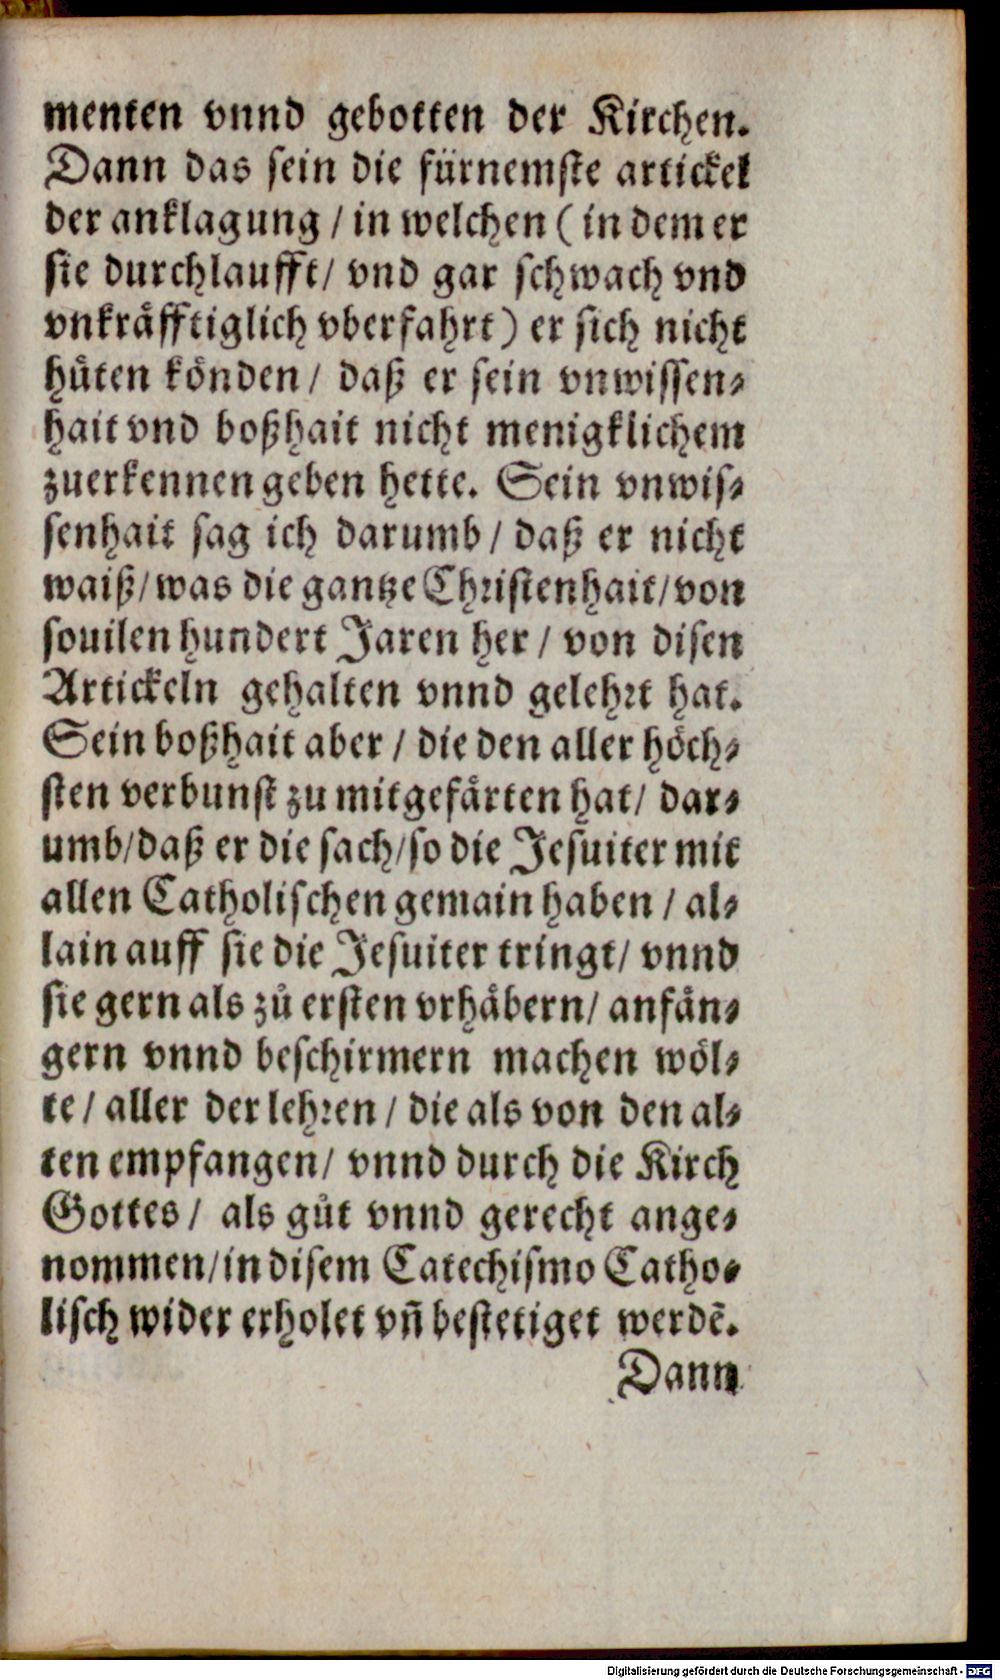 menten vnnd gebotten der Kirchen.
Dann das sein die fürnemste artickel
der anklagung / in welchen ( in dem er
sie durchlaufft / vnd gar schwach vnd
vnkräfftiglich vberfahrt ) er sich nicht
hüten könden / daß er sein vnwissen-
hait vnd boßhait nicht menigklichem
zuerkennen geben hette. Sein vnwis-
senhait sag ich darumb / daß er nicht
waiß / was die gantze Christenhait / von
souilen hundert Jaren her / von disen
Artickeln gehalten vnnd gelehrt hat.
Sein boßhait aber / die den aller höch-
sten verbunst zu mitgefärten hat / dar-
umb / daß er die sach / so die Jesuiter mit
allen Catholischen gemain haben / al-
lain auff sie die Jesuiter tringt / vnnd
sie gern als zů ersten vrhäbern / anfän-
gern vnnd beschirmern machen wöl-
te / aller der lehren / die als von den al-
ten empfangen / vnnd durch die Kirch
Gottes / als gůt vnnd gerecht ange-
nommen / in disem Catechismo Catho-
lisch wider erholet vñ bestetiget werdẽ.
Dann
Digitalisierung gefördert durch die Deutsche Forschungsgemeinschaft - DFG